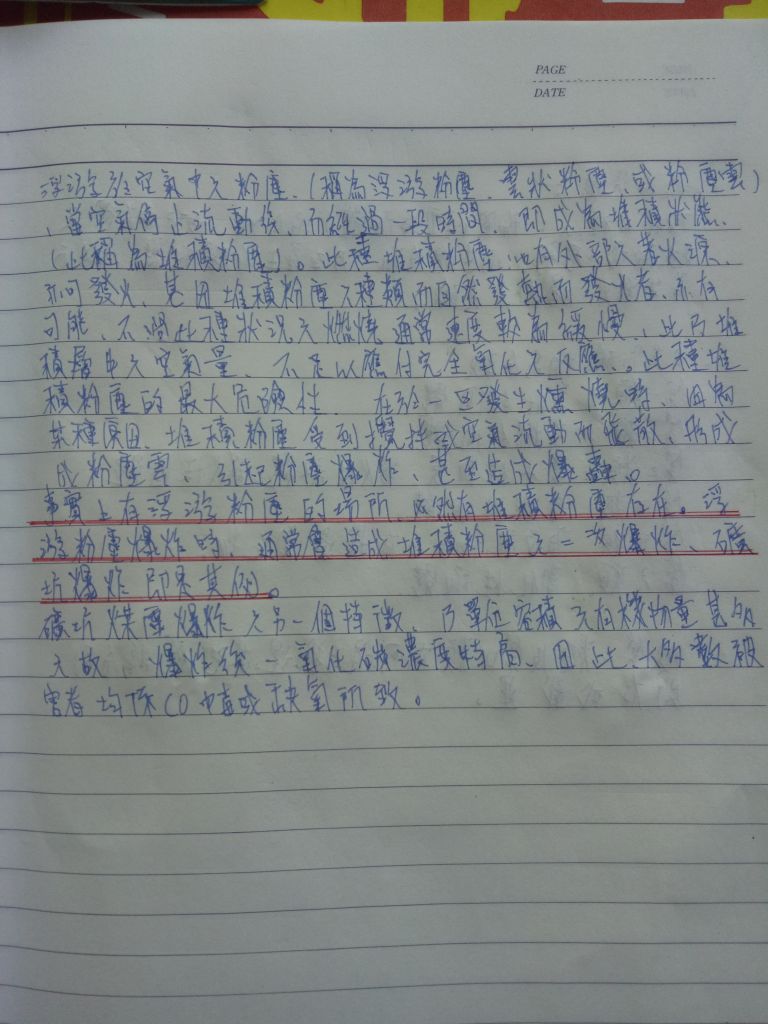 PAGE
DATE
浮游於空氣中之粉塵、(稱為浮游粉塵、雲狀粉塵、或粉塵雲)
、當空氣停止流動後、而經過一段時間、即成為堆積狀態、
(此稱為堆積粉塵)。此種堆積粉塵、如有外部之著火源、
亦可發火、甚因堆積粉塵之種類而自然發熱而發火者、亦有
可能、不過此種狀況之燃燒通常速度較為緩慢、此乃堆
積層中之空氣量、不足以應付完全氧化之反應、。此種堆
積粉塵的最大危險性、在於一旦發生燻燒時、因為
某種原因、堆積粉塵受到攪拌或空氣流動而張散、形成
成粉塵雲、引起粉塵爆炸、甚至造成爆轟。
事實上有浮游粉塵的場所、必然有堆積粉塵存在。浮
游粉塵爆炸時、通常會造成堆積粉塵之二次爆炸、礦
坑爆炸即是其例。
礦坑煤塵爆炸之另一個特徵、乃單位容積之有機物量甚多
之故、爆炸後一氧化碳濃度特高、因此、大多數被
害者均係CO中毒或缺氧所致。